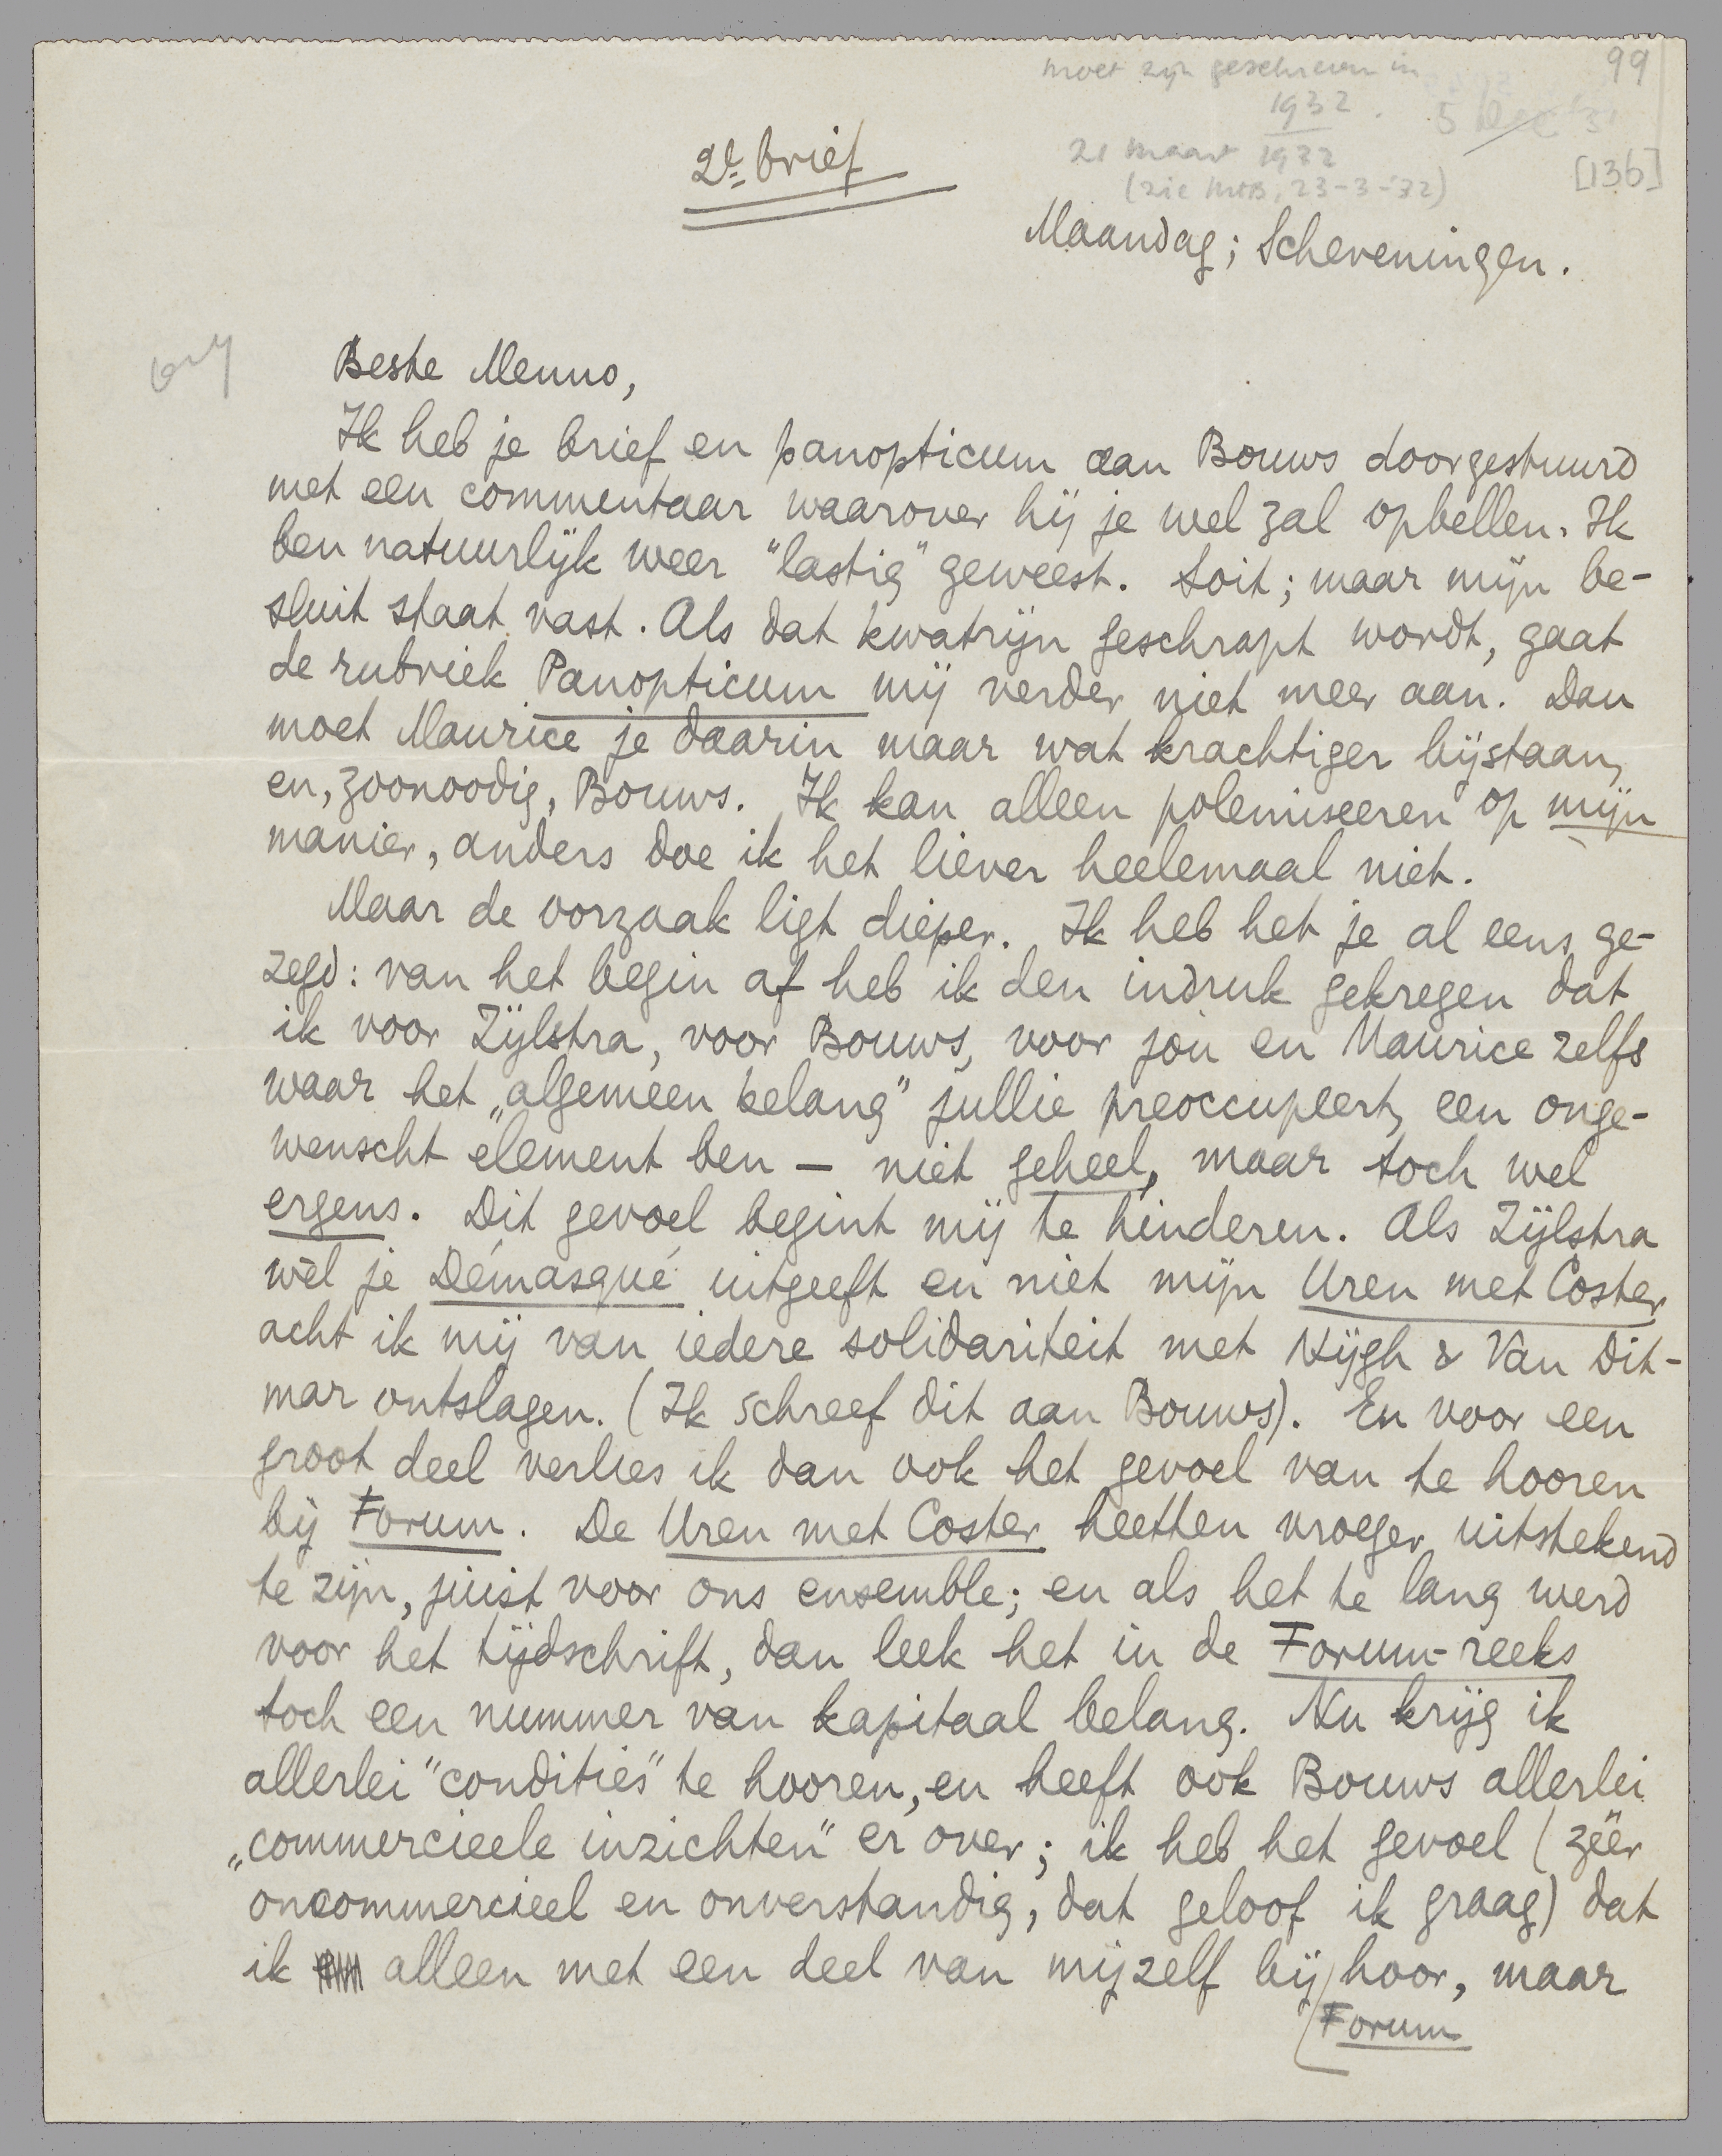 99
moet zijn geschreven in
1932.
5 Dec '3
21 maart 1932
(zie MtB, 23-3-'32)
[136]
2e brief
Maandag; Scheveningen.
Beste Menno,
Ik heb je brief en panopticum aan Bouws doorgestuurd
met een commentaar waarover hij je wel zal opbellen. Ik
ben natuurlijk weer "lastig" geweest. Soit; maar mijn be-
sluit staat vast. Als dat kwatrijn geschrapt wordt, gaat
de rubriek Panopticum mij verder niet meer aan. Dan
moet Maurice je daarin maar wat krachtiger bijstaan,
en, zoonoodig, Bouws. Ik kan alleen polemiseeren op mijn
manier, anders doe ik het liever heelemaal niet.
Maar de oorzaak ligt dieper. Ik heb het je al eens ge-
zegd: van het begin af heb ik den indruk gekregen dat
ik voor Zijlstra, voor Bouws, voor jou en Maurice zelfs
waar het „algemeen belang" jullie preoccupeert, een onge-
wenscht element ben – niet geheel, maar toch wel
ergens. Dit gevoel begint mij te hinderen. Als Zijlstra
wèl je Démasqué uitgeeft en niet mijn Uren met Coster
acht ik mij van iedere solidariteit met Nijgh & Van Dit-
mar ontslagen. (Ik schreef dit aan Bouws). En voor een
groot deel verlies ik dan ook het gevoel van te hooren
bij Forum. De Uren met Coster heetten vroeger uitstekend
te zijn, juist voor ons ensemble; en als het te lang werd
voor het tijdschrift, dan leek het in de Forum-reeks
toch een nummer van kapitaal belang. Nu krijg ik
allerlei "condities" te hooren, en heeft ook Bouws allerlei
„commercieele inzichten" er over; ik heb het gevoel (zéér
oncommercieel en onverstandig, dat geloof ik graag) dat
ik alleen met een deel van mijzelf bij hoor, maar
Forum